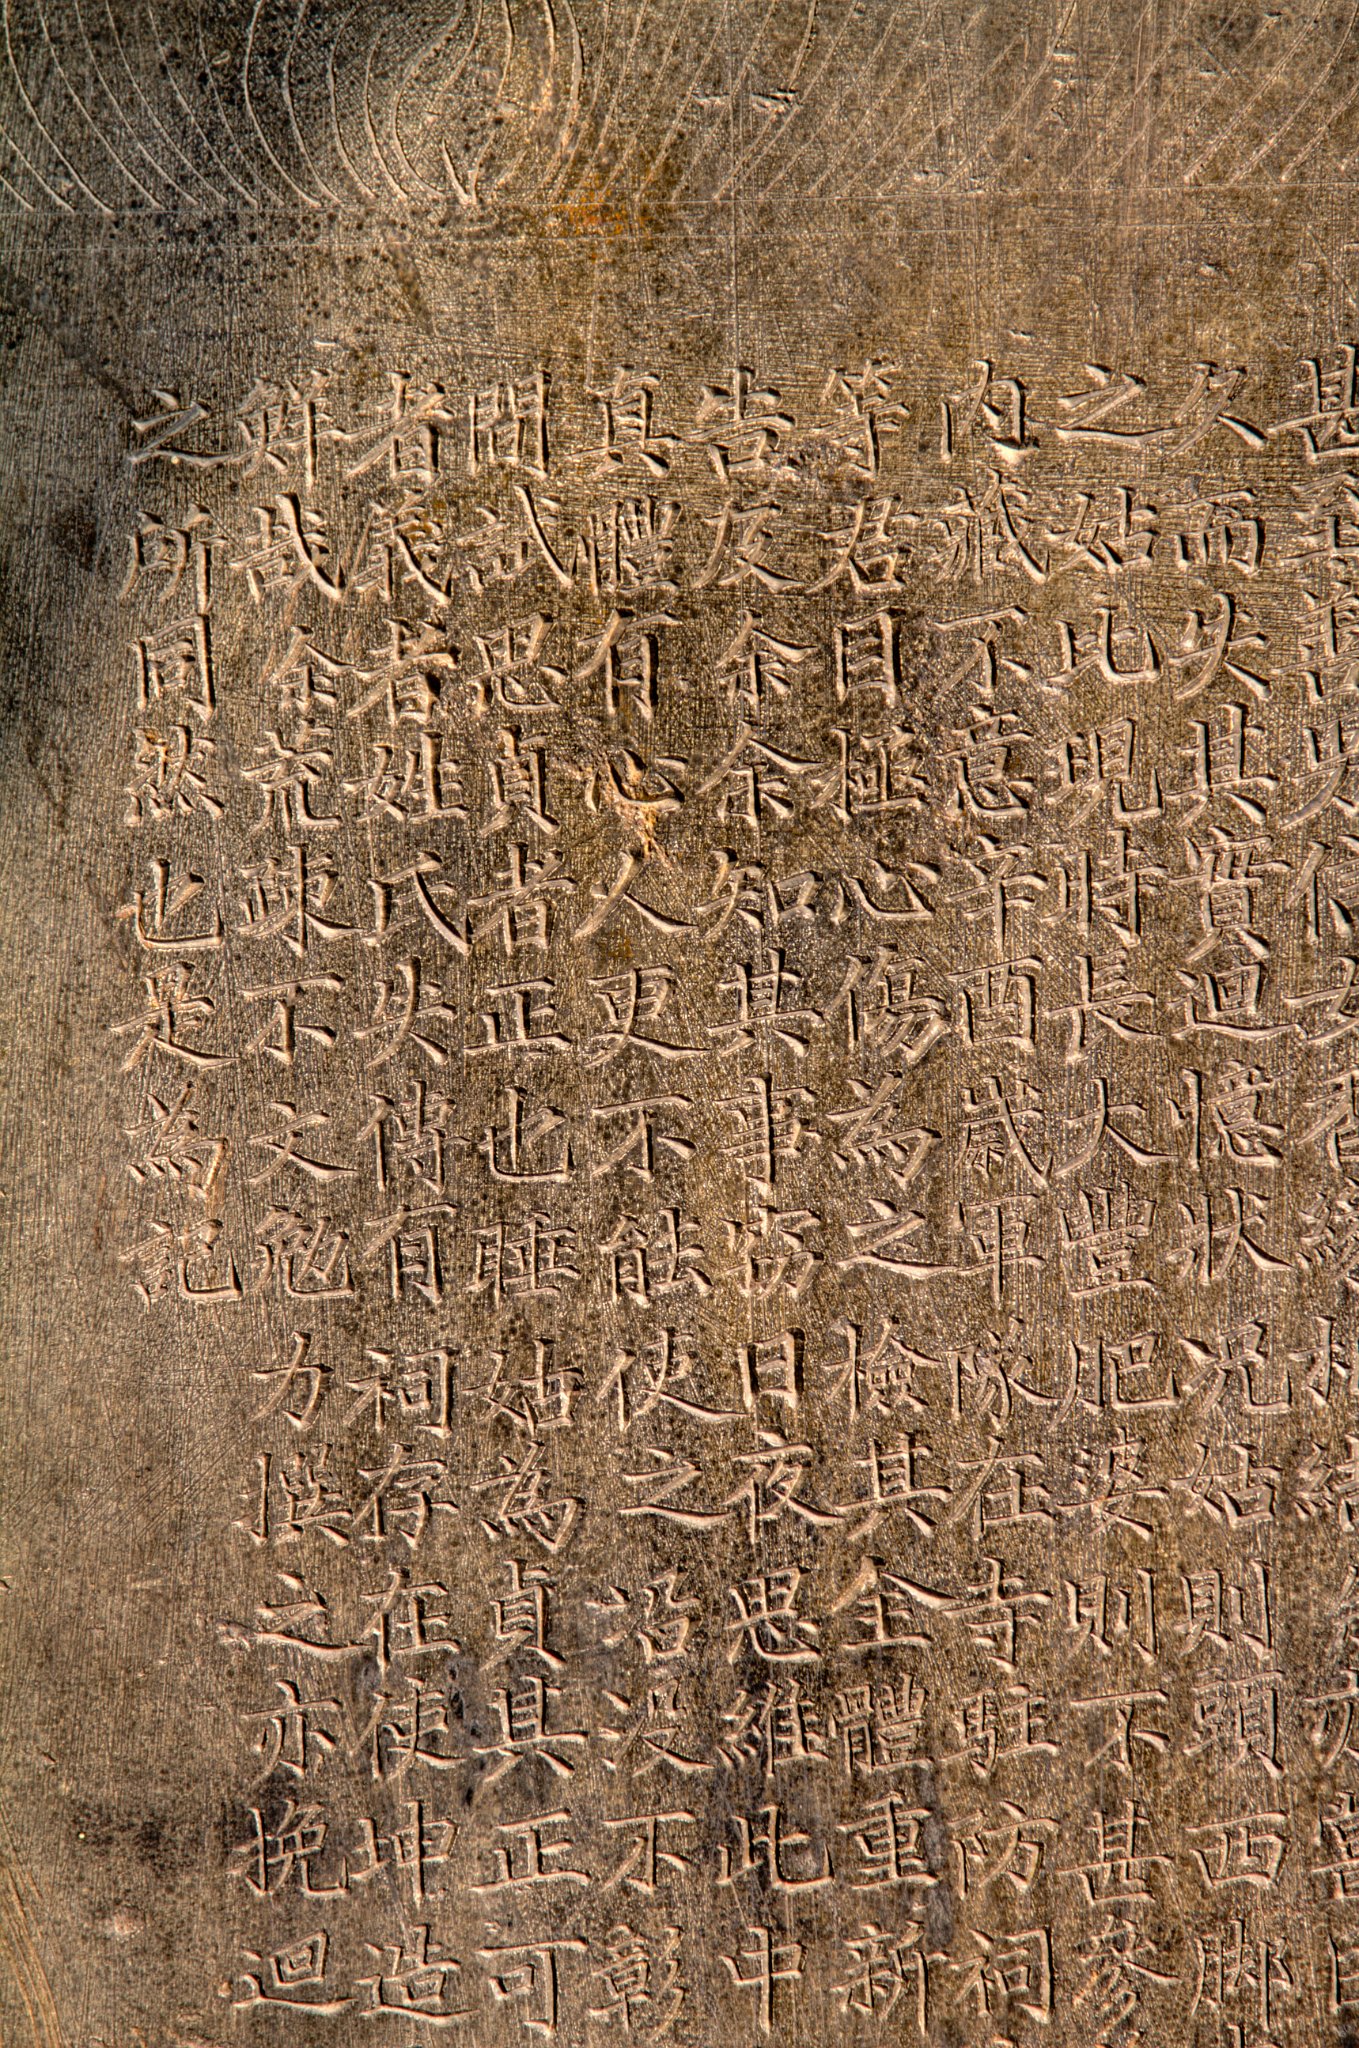 甚至善男信女
久而失其實迴憶狀況姑則頭西腳
之姑此現時長大豐肥婆則不甚參
內藏不意辛酉歲軍隊在寺駐防祠
等君目極心傷為之檢其全體重新
告及余余知其事日夜思維此中
真體有心人更不能使之沿沒不彰
間試思貞者正也睡姑為貞具正可
者義者姓氏失傳有祠存在使坤造
鮮哉余荒疎不文勉力撰之亦挽迴
之所同然也是為記